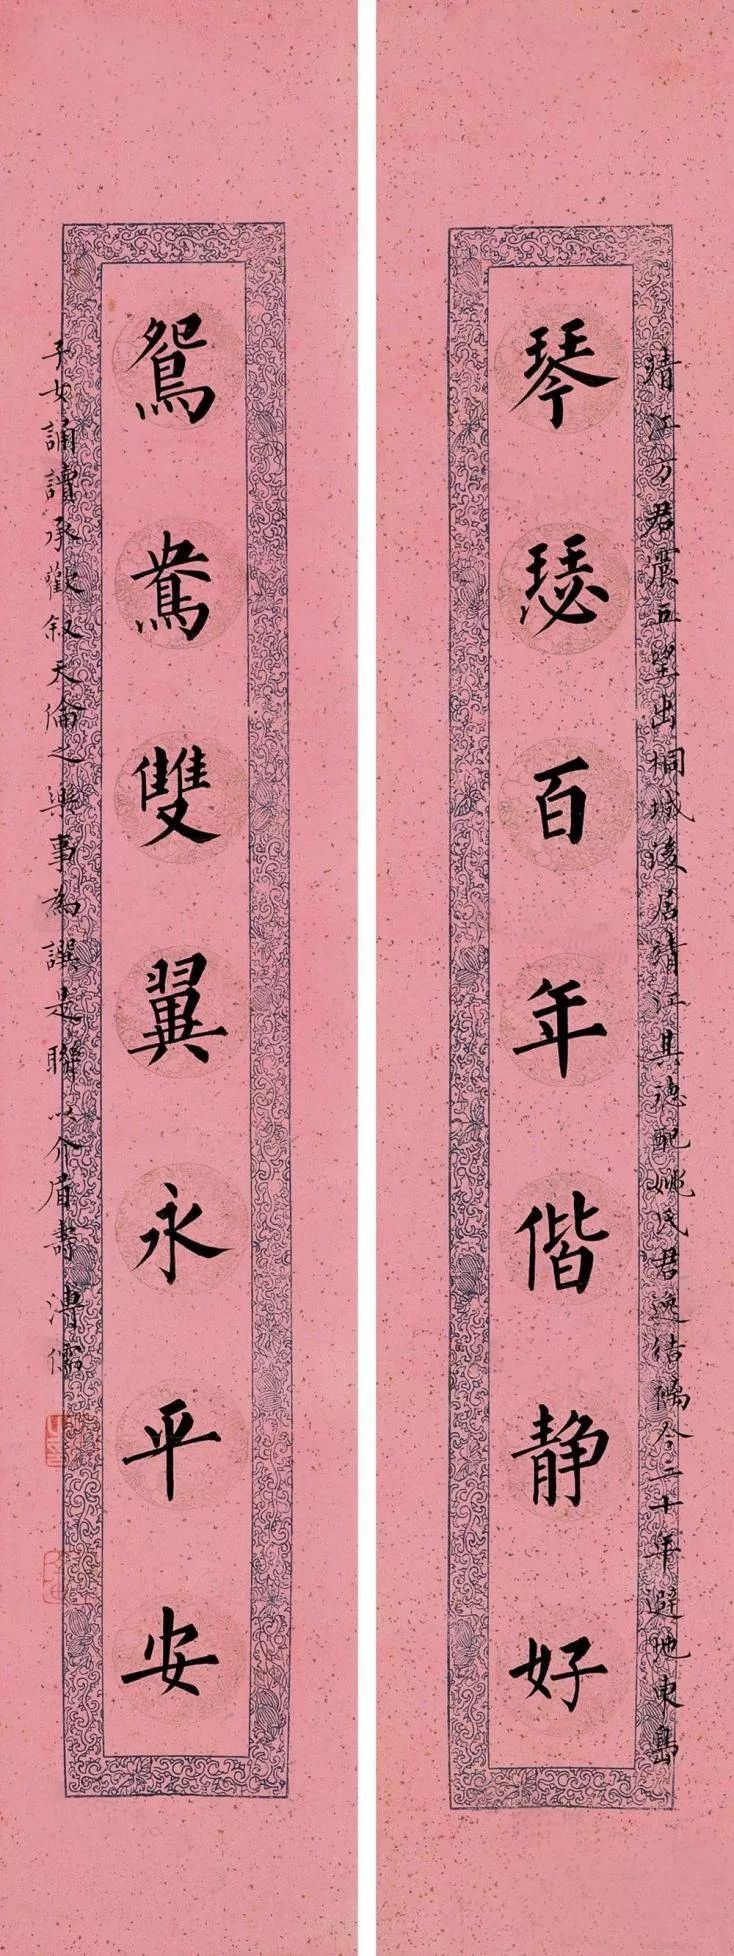 靖江方君震五望出桐城後居靖江其德配姚氏君逸结褵今二十年避地東島
琴瑟百年偕静好
鴛鴦雙翼永平安
子女誦讀承歡叙天倫之樂事為譔是聯以介眉壽 溥儒